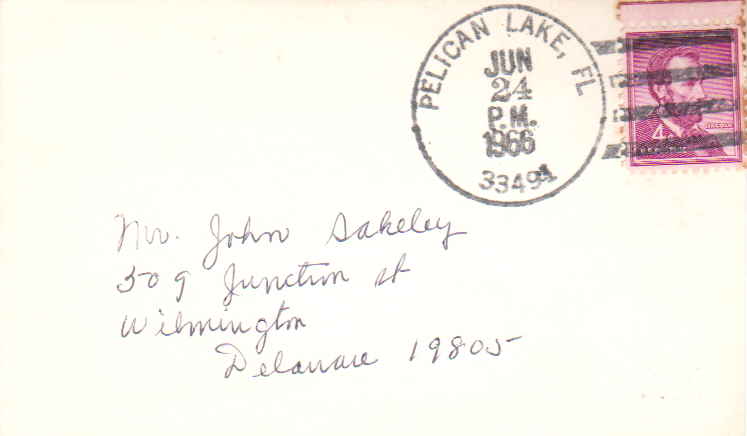 PELICAN LAKE, FL
JUN
24
P.M.
1966
33491
4¢
Mr. John Sakeley
509 Junction st
Wilmington
Delaware 19805